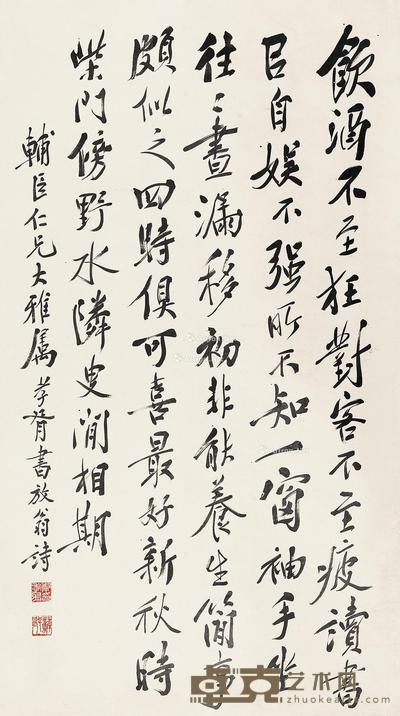 飲酒不至狂對客不至疲讀書
㠯自娱不强所不知一窗袖手坐
往〻晝漏移初非能養生簡事
頗似之四時俱可喜最好新秋時
柴門傍野水隣叟閒相期
輔臣仁兄大雅屬 孝胥書放翁詩
卓克艺术网
zhuokearts.com